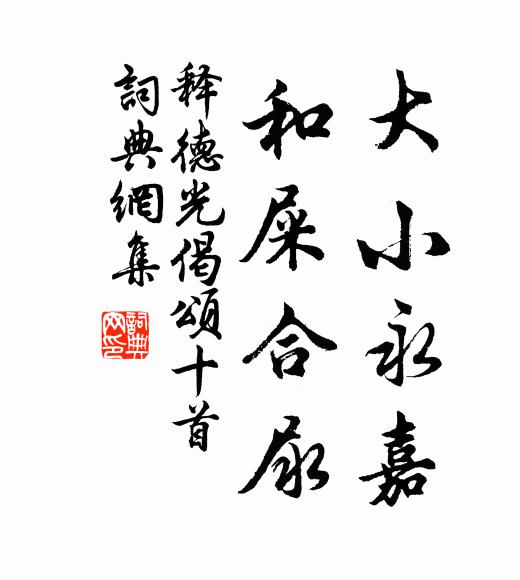 大小永嘉
和屎合尿
释德光偈頌十首
詞典網集
詞典網印